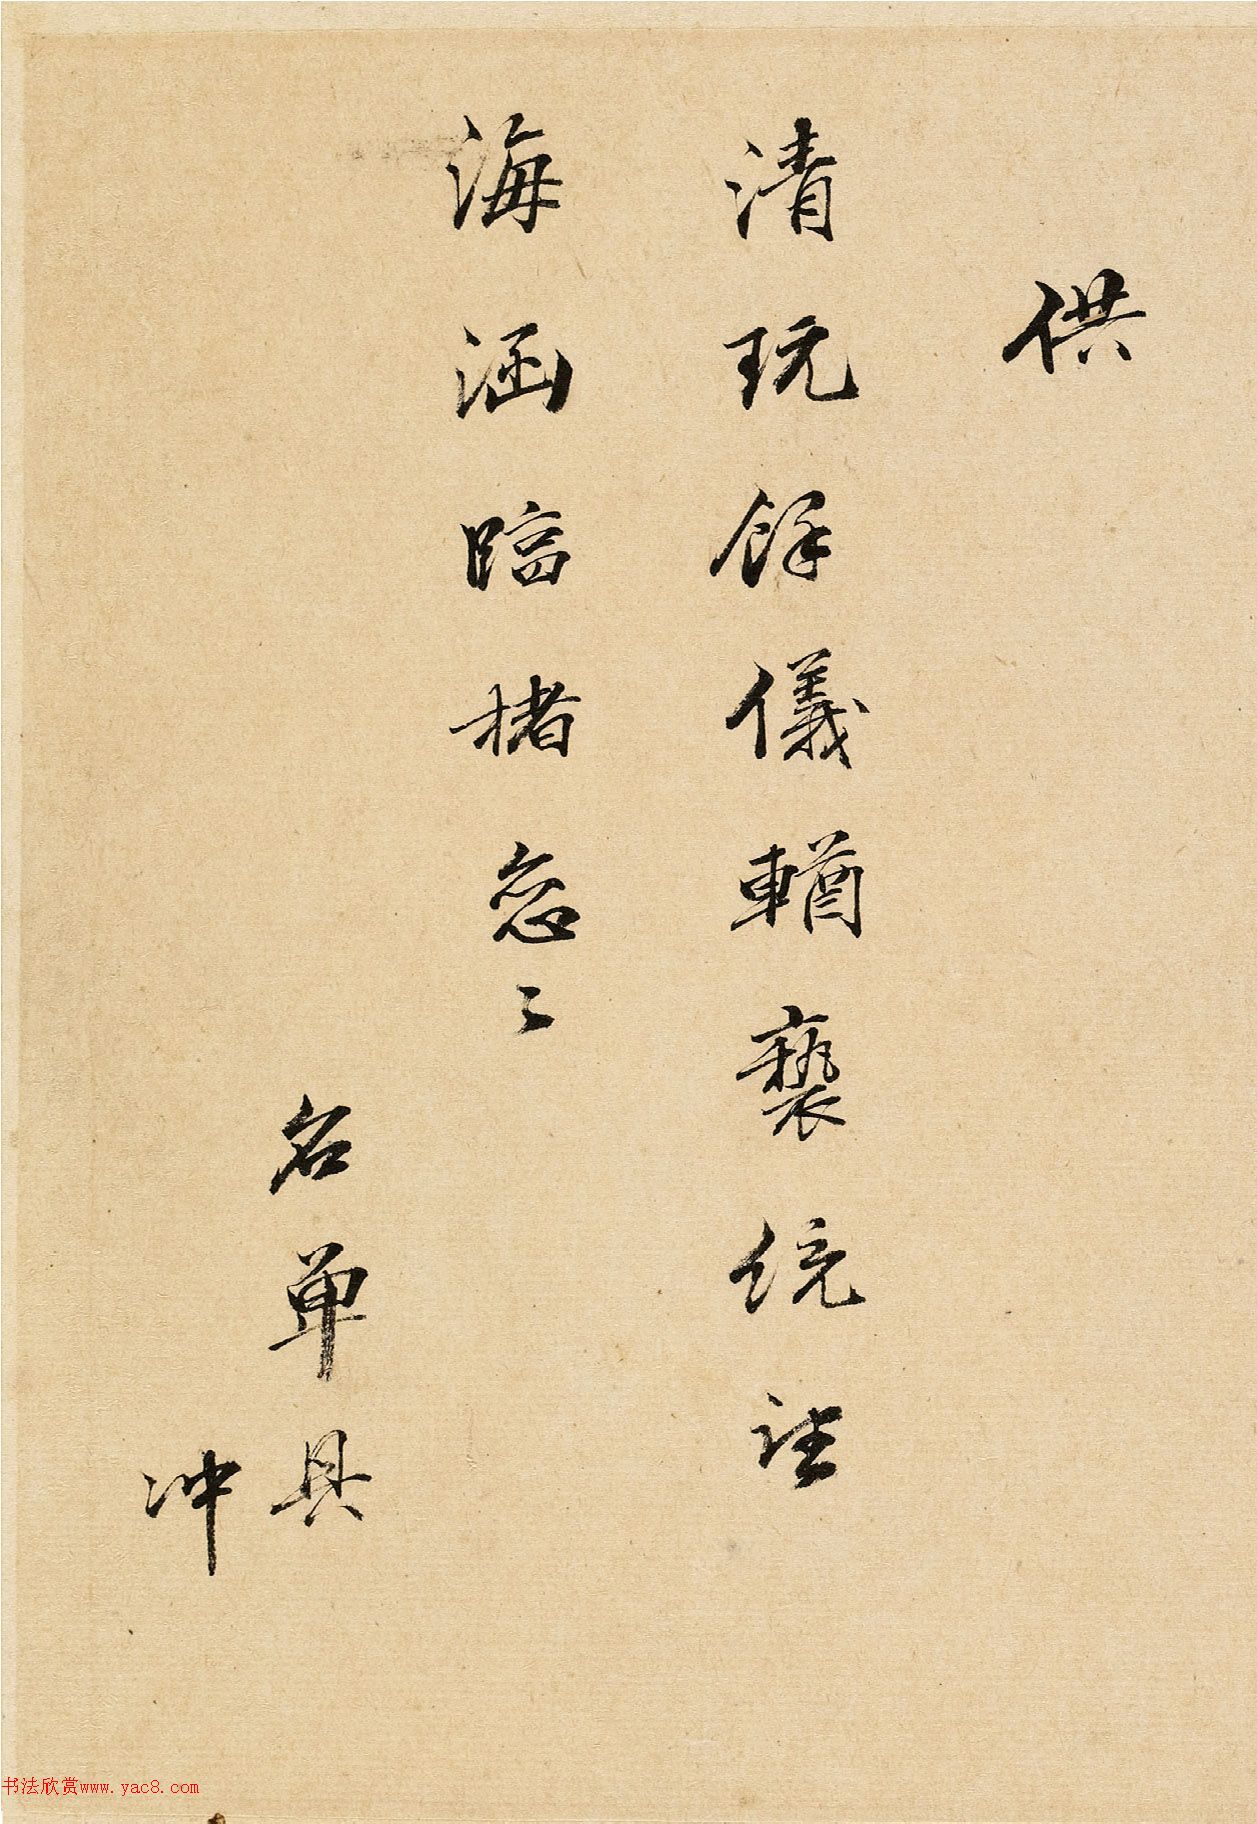 供
清玩餘儀輶褻統
海涵臨楮怱〻
名單具
冲
书法欣赏www.yac8.com